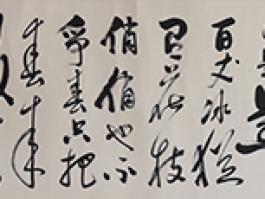 百丈冰猶
有花枝
俏俏也不
爭春只把
春來